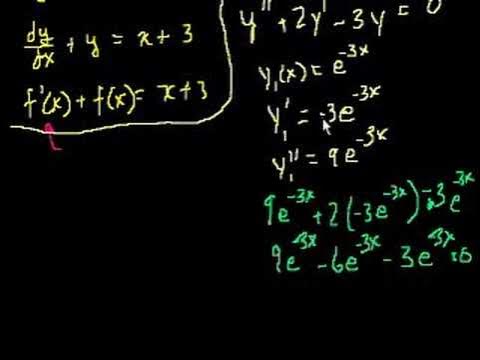 dy/dx + y = x + 3
f'(x) + f(x) = x + 3
y'' + 2y' - 3y = 0
y₁(x) = e^-3x
y₁' = -3e^-3x
y₁'' = 9e^-3x
9e^-3x + 2(-3e^-3x) - 3e^-3x
9e^-3x - 6e^-3x - 3e^-3x = 0